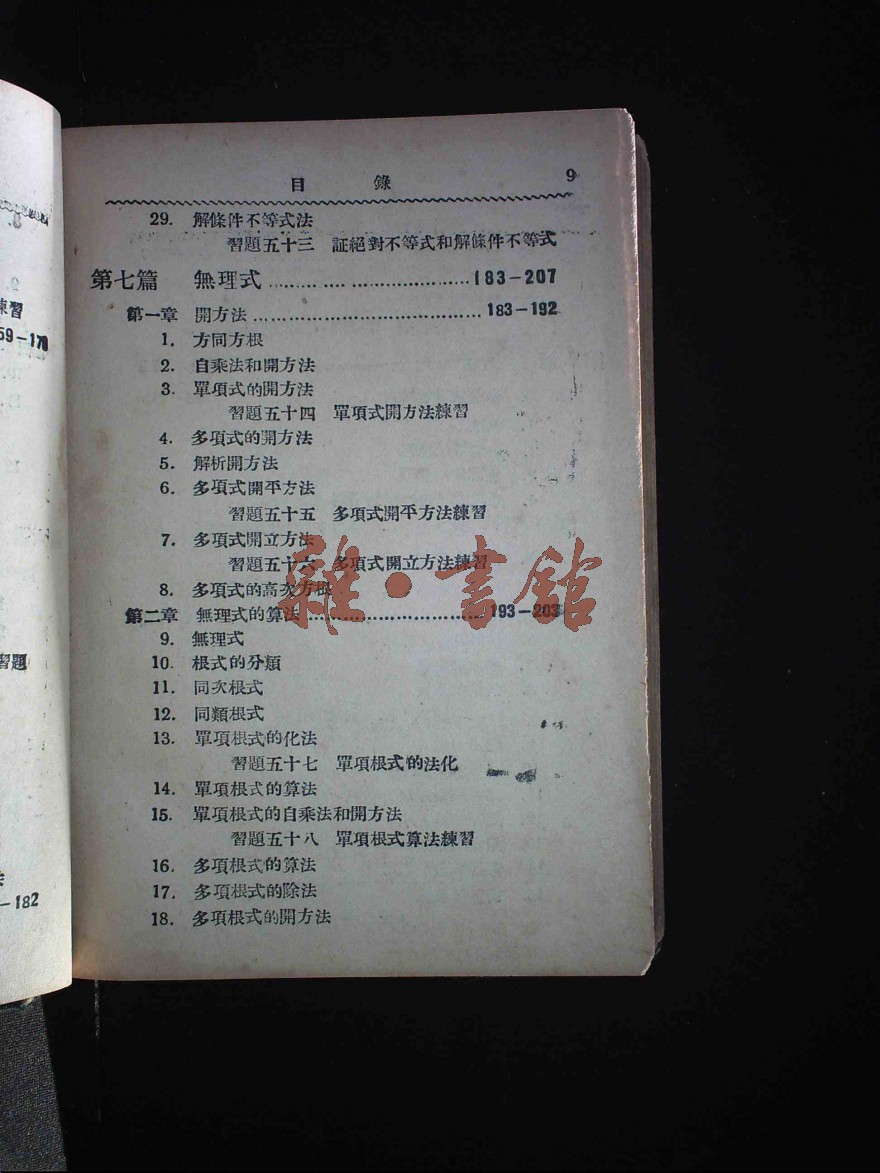 目 錄 9
29. 解條件不等式法
習題五十三 証絕對不等式和解條件不等式
第七篇 無理式 183－207
第一章 開方法 183－192
1. 方同方根
2. 自乘法和開方法
3. 單項式的開方法
習題五十四 單項式開方法練習
4. 多項式的開方法
5. 解析開方法
6. 多項式開平方法
習題五十五 多項式開平方法練習
7. 多項式開立方法
習題五十六 多項式開立方法練習
8. 多項式的高次方根
第二章 無理式的算法 193－203
9. 無理式
10. 根式的分類
11. 同次根式
12. 同類根式
13. 單項根式的化法
習題五十七 單項根式的法化
14. 單項根式的算法
15. 單項根式的自乘法和開方法
習題五十八 單項根式算法練習
16. 多項根式的算法
17. 多項根式的除法
18. 多項根式的開方法
雜·書館
習題
－182